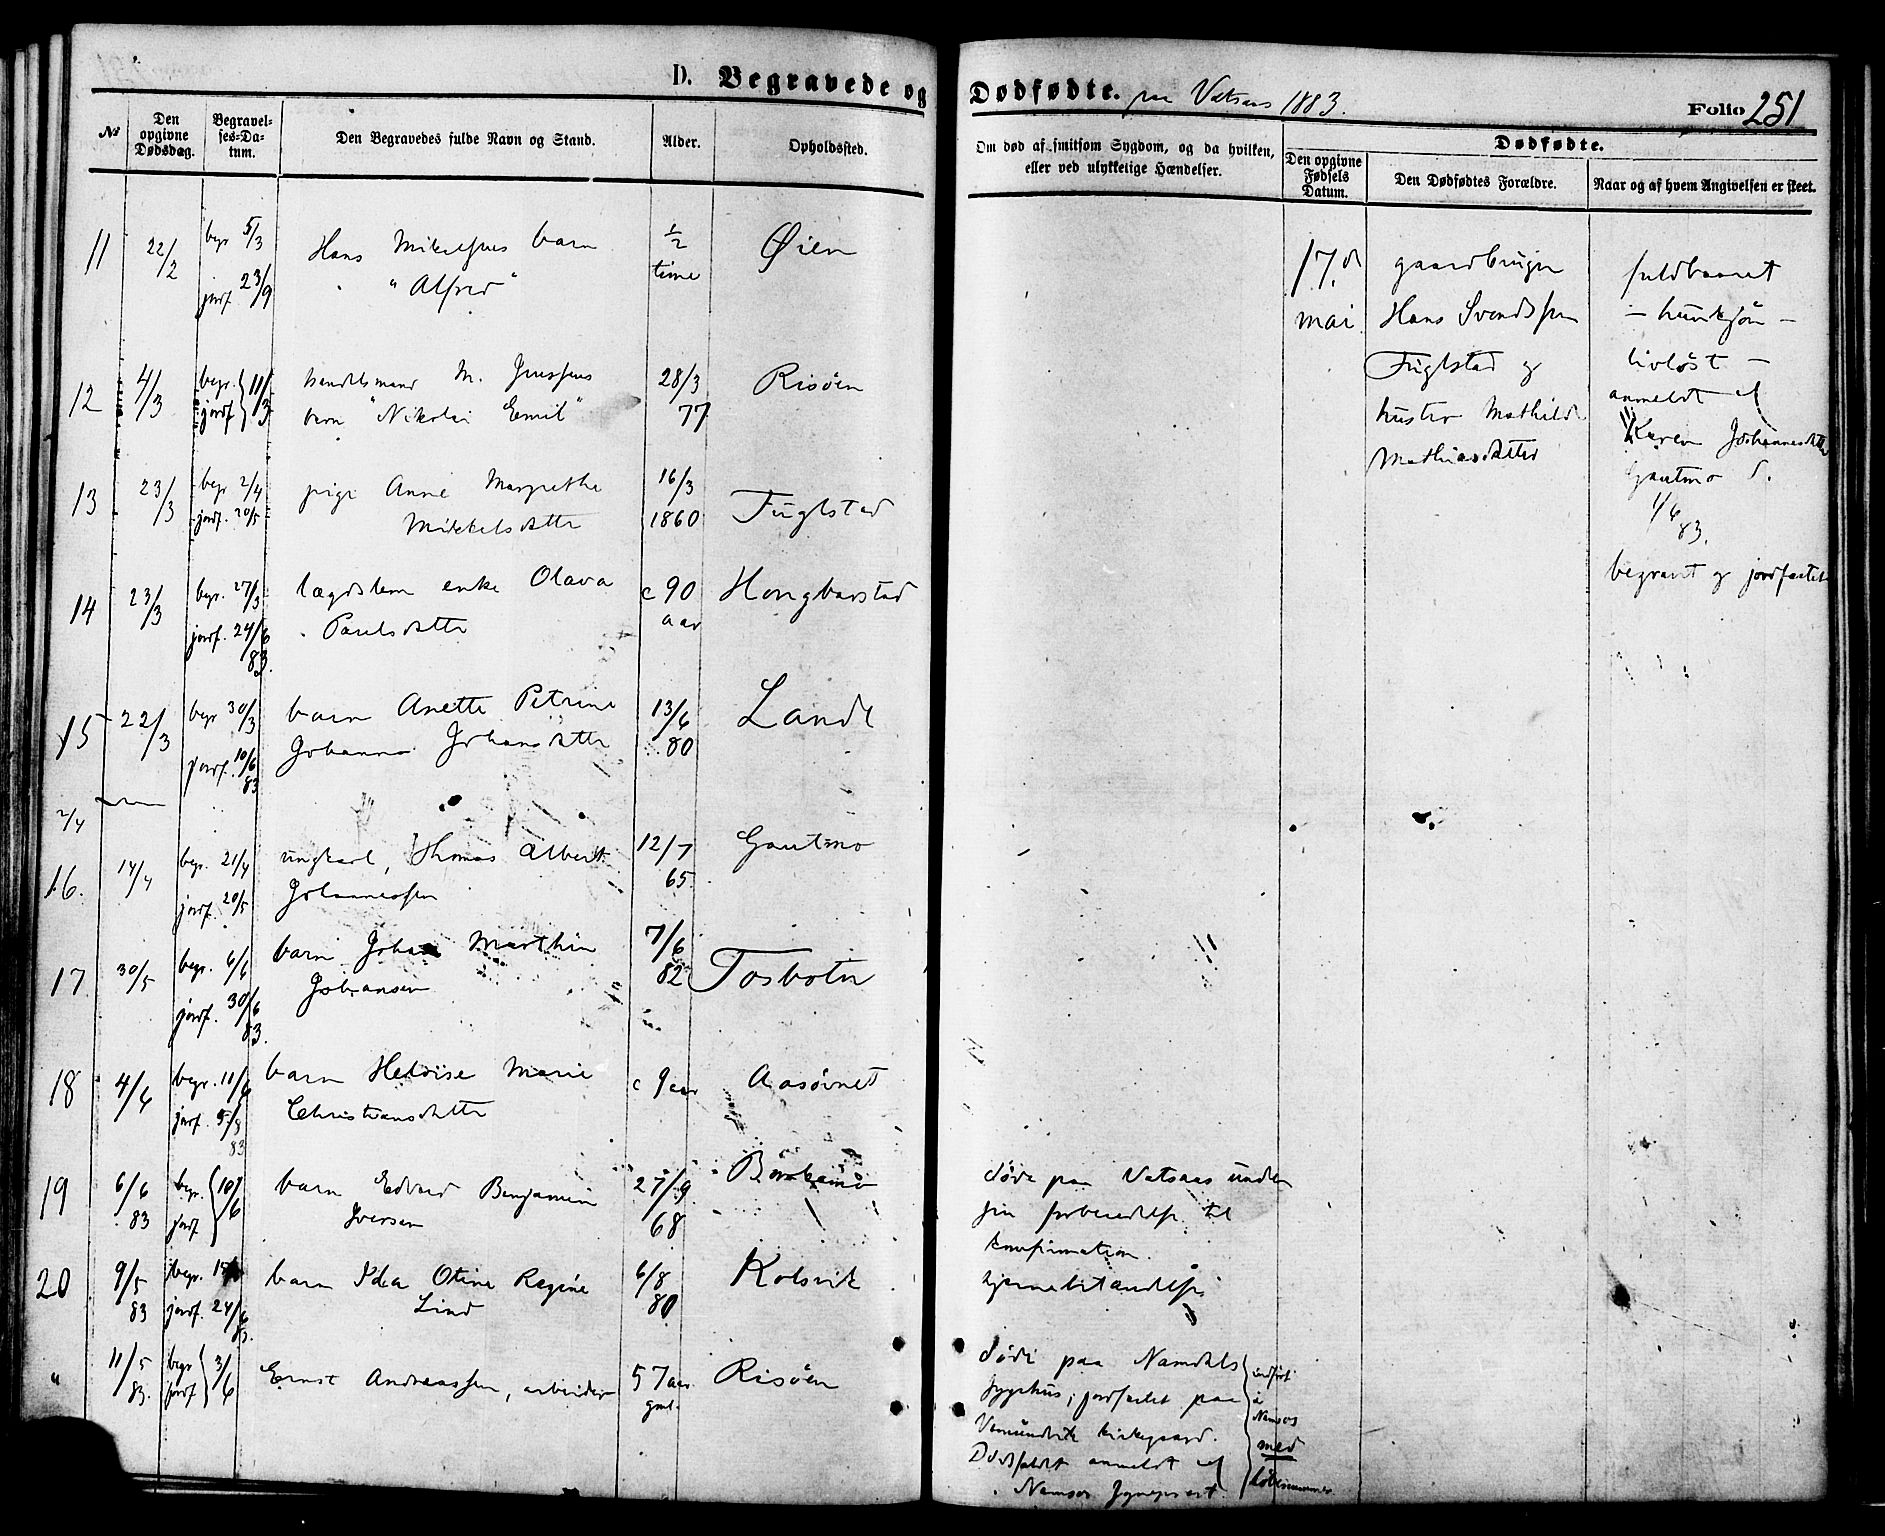 D. Begravede og
Dødfødte. paa Vatsaas 1883.
Folio 251
№
Den opgivne Dødsdag.
Begravelses-Datum.
Den Begravedes fulde Navn og Stand.
Alder.
Opholdssted.
Om død af smitsom Sygdom, og da hvilken,
eller ved ulykkelige Hændelser.
Dødfødte.
Den opgivne Fødsels Datum.
Den Dødfødtes Forældre.
Naar og af hvem Angivelsen er skeet.
11 22/2 begr 5/3 Hans Mikelsens barn ½ Øien
jordf. 23/9 "Alfred" time
12 4/3 begr. 11/3 handelsmand M. Jenssens 28/3 Risøen
jordf barn "Nikolai Emil" 77
13 23/3 begr 2/4 pige Anne Margrethe 16/3 Fuglstad
jordf. 20/5 Mikkelsdatter 1860
14 23/3 begr. 27/3 lægdslem enke Olava c 90 Hongbarstad
jordf. 24/6 Paulsdatter aar
83.
15 22/3 begr 30/3 barn Anette Petrine 13/6 Lande
jordf. 10/6 Johanna Johansdatter 80
83
2/4
16. 14/4 begr. 21/4 ungkarl, Thomas Albert 12/7 Gautmo
jordf. 20/5 Johannessen 65
17 30/5 begr. 6/6 barn Johan Marthin 7/6 Tosbotn
jordf. 30/6 Johansen 82
83.
18 4/6 begr. 11/6 barn Heloise Marie c 9 aar Aasørnet
jordf. 5/8 Christiansdatter
83
19 6/6 begr. 10/6 barn Edvard Benjamin 27/9
83 jordf Iversen 68
20 9/5 begr. barn Ida Otine Regine 6/8 Kolsvik
83 jordf. 24/6 Lind 80
83.
" 11/5 begr 3/6 Ernst Andreassen, arbeider 57 aar Risøen
83. jordf gml.
17. de
mai
gaardbruger
Hans Svendssen
Fuglstad og
hustru Mathilde
Mathiasdatter
fuldbaaret
– hunkjøn –
livløst –
anmeldt af
Karen Johannesdatter
Gautmo d.
1/6
83.
begravet og jordfæstet
døde paa Vatsaas under
sin forberedelse til
konfirmation.
hjernebetændelse
døde paa Namdals
sygehus; jordfæstet paa
Vemundvik kirkegaard.
Dødsfaldet anmeldt af
Namsos sogneprest.
indført
i
Namsos
med
løbenummer